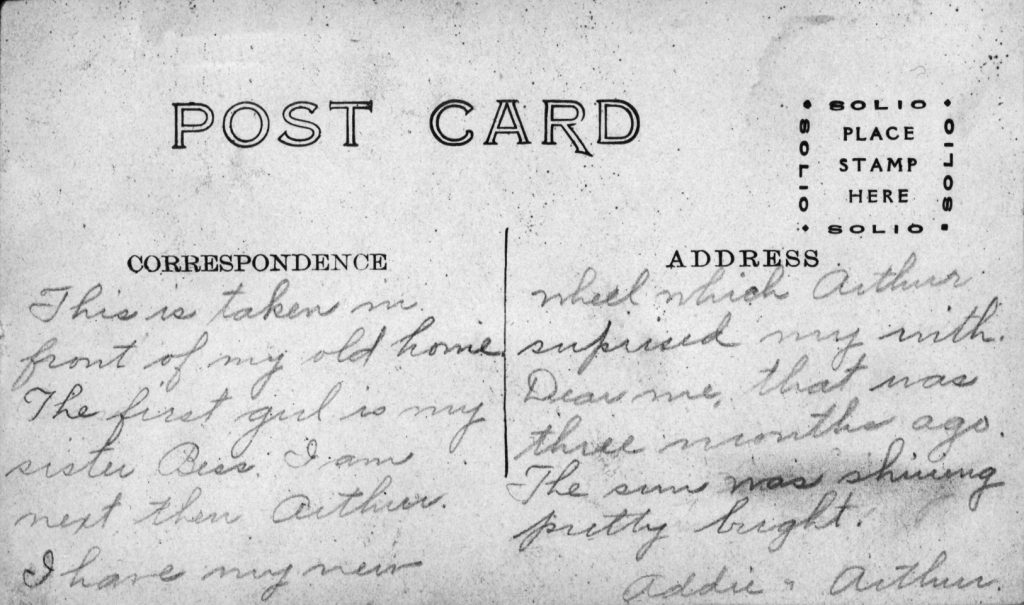 POST CARD
SOLIO
SOLIO
PLACE
STAMP
HERE
SOLIO
SOLIO
CORRESPONDENCE
This is taken in
front of my old home.
The first girl is my
sister Bess. I am
next then Arthur.
I have my new
ADDRESS
wheel which Arthur
supprised my with.
Dear me, that was
three months ago.
The sun was shining
pretty bright.
Addie & Arthur.